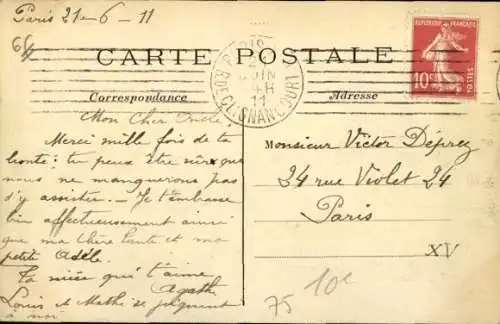 Paris 21-6-11
64
CARTE POSTALE
Correspondance
Adresse
RÉPUBLIQUE FRANÇAISE
10c
POSTES
PARIS
R. DE CLIGNANCOURT
JUIN
11
Mon Cher Oncle
Merci mille fois de ta
bonté; tu peux être sûr que
nous ne manquerons pas
d'y assister. Je t'embrasse
bien affectueusement ainsi
que ma chère tante et ma
petite Adèle.
Ta nièce qui t'aime
Agathe
Louis et Mathilde se joignent
à moi
Monsieur Victor Déprez
24 rue Violet 24
Paris
XV
75
10e